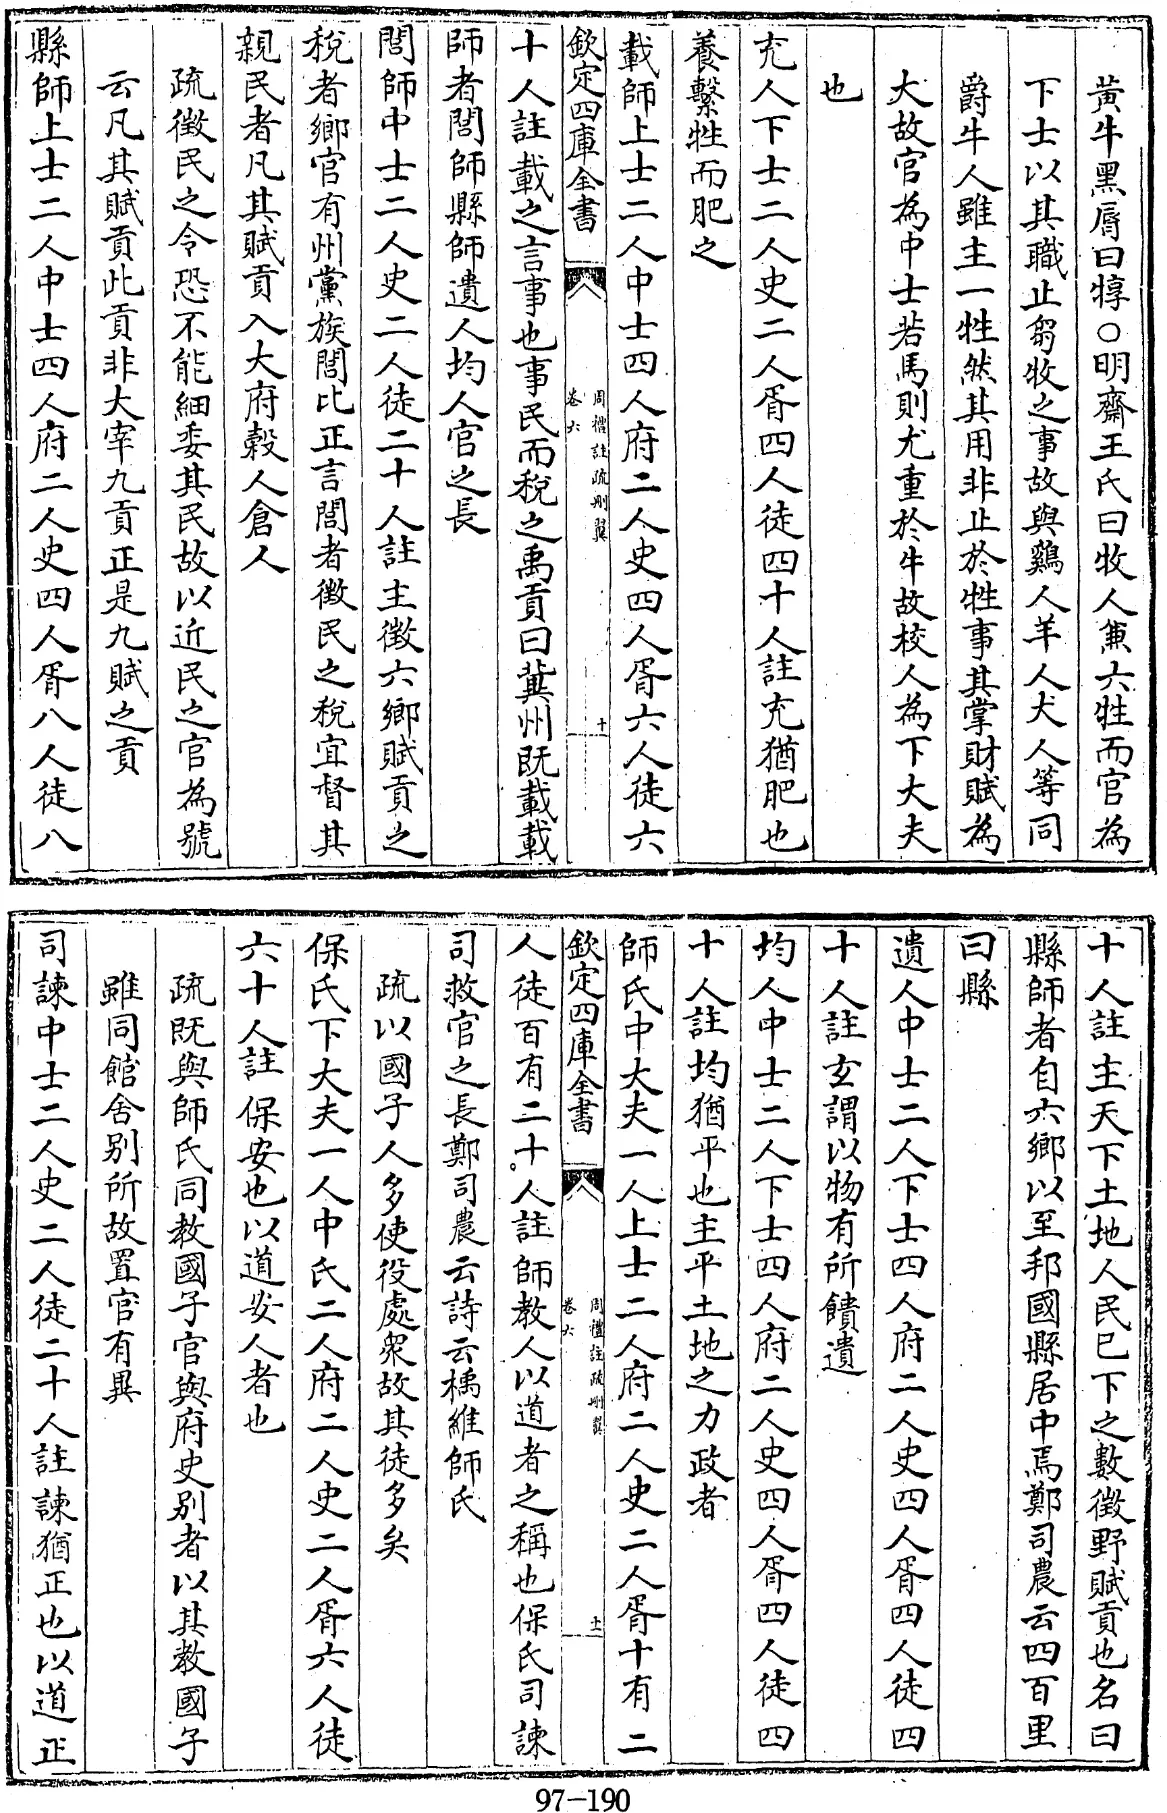 黃牛黑脣曰犉○明齋王氏曰牧人兼六牲而官為
下士以其職止芻牧之事故與鷄人羊人犬人等同
爵牛人雖主一牲然其用非止於牲事其掌財賦為
大故官為中士若馬則尤重於牛故校人為下大夫
也
充人下士二人史二人胥四人徒四十人註充猶肥也
養繫牲而肥之
載師上士二人中士四人府二人史四人胥六人徒六
欽定四庫全書
周禮註疏刪翼
卷六
十
十人註載之言事也事民而稅之禹貢曰冀州既載載
師者閭師縣師遺人均人官之長
閭師中士二人史二人徒二十人註主徵六鄉賦貢之
稅者鄉官有州黨族閭比正言閭者徵民之稅宜督其
親民者凡其賦貢入大府穀人倉人
疏徵民之令恐不能細委其民故以近民之官為號
云凡其賦貢此貢非大宰九貢正是九賦之貢
縣師上士二人中士四人府二人史四人胥八人徒八
十人註主天下土地人民已下之數徵野賦貢也名曰
縣師者自六鄉以至邦國縣居中焉鄭司農云四百里
曰縣
遺人中士二人下士四人府二人史四人胥四人徒四
十人註玄謂以物有所饋遺
均人中士二人下士四人府二人史四人胥四人徒四
十人註均猶平也主平土地之力政者
師氏中大夫一人上士二人府二人史二人胥十有二
欽定四庫全書
周禮註疏刪翼
卷六
十一
人徒百有二十人註師教人以道者之稱也保氏司諫
司救官之長鄭司農云詩云楀維師氏
疏以國子人多使役處衆故其徒多矣
保氏下大夫一人中氏二人府二人史二人胥六人徒
六十人註保安也以道安人者也
疏既與師氏同教國子官與府史别者以其教國子
雖同館舍别所故置官有異
司諫中士二人史二人徒二十人註諫猶正也以道正
97-190